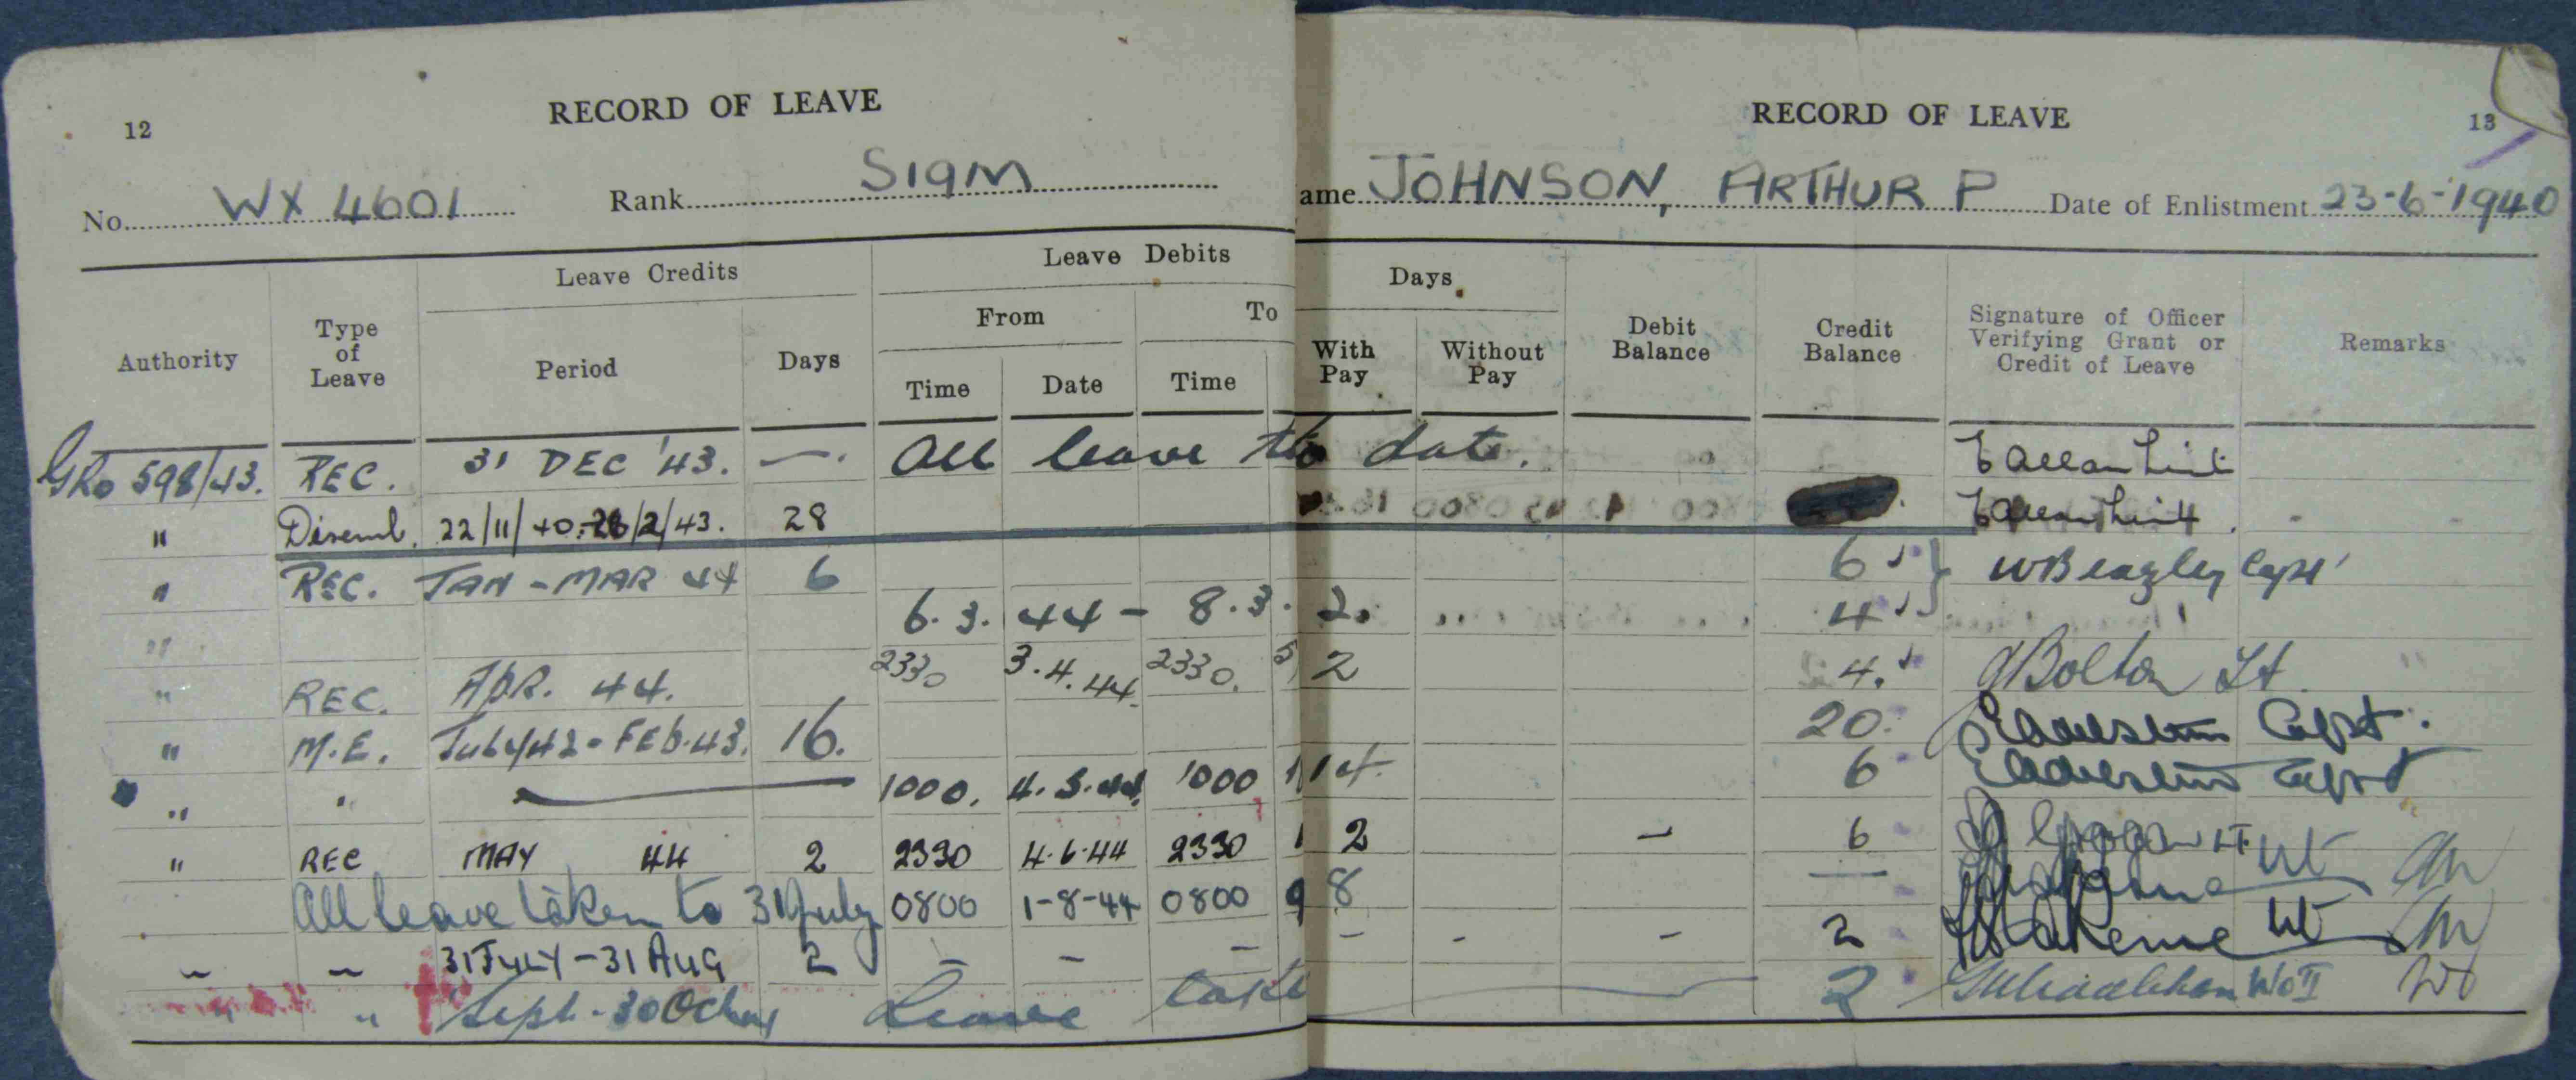 12
RECORD OF LEAVE
No. WX 4601 Rank SIGM
Leave Credits Leave Debits
Authority Type of Leave Period Days From To
Time Date Time
GRO 598/43. REC. 31 DEC '43. —. All leave to
" Disemb. 22/11/40-28/2/43. 28
" REC. JAN - MAR 44 6
" 6.3. 44 - 8.3.
" REC. APR. 44. 2330 3.4.44 2330.
" M.E. JULY 42 - FEB. 43. 16.
" " 1000. 4.5.44 1000
" REC MAY 44 2 2330 4.6.44 2330
All leave taken to 31 July 0800 1-8-44 0800 9
" " 31 JULY - 31 AUG 2 - - -
" " Sept. - 30 Oct Leave take
RECORD OF LEAVE
13
ame JOHNSON, ARTHUR P Date of Enlistment 23-6-1940
Days
With Pay Without Pay Debit Balance Credit Balance Signature of Officer Verifying Grant or Credit of Leave Remarks
date. Allan Lieut
Allan Lieut.
6 WBeazley Capt
2. 4
2 4. Bolton Lt.
20. Capt.
14 6 Capt
2 - 6 LT
8 — Lt
- - - 2 Lt
2 WO II